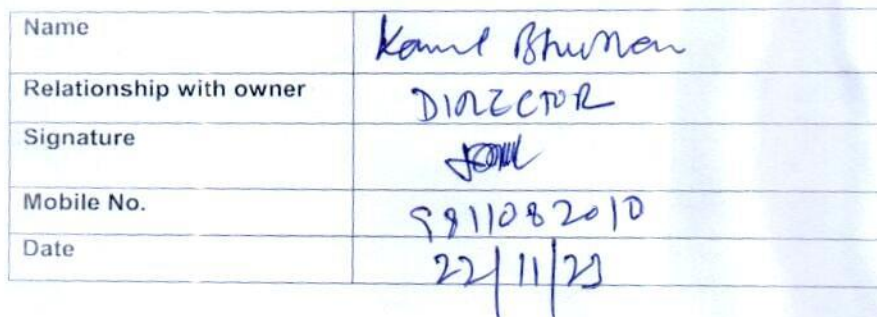 Name Kamal Bhushan
Relationship with owner DIRECTOR
Signature
Mobile No. 9811082010
Date 22/11/23